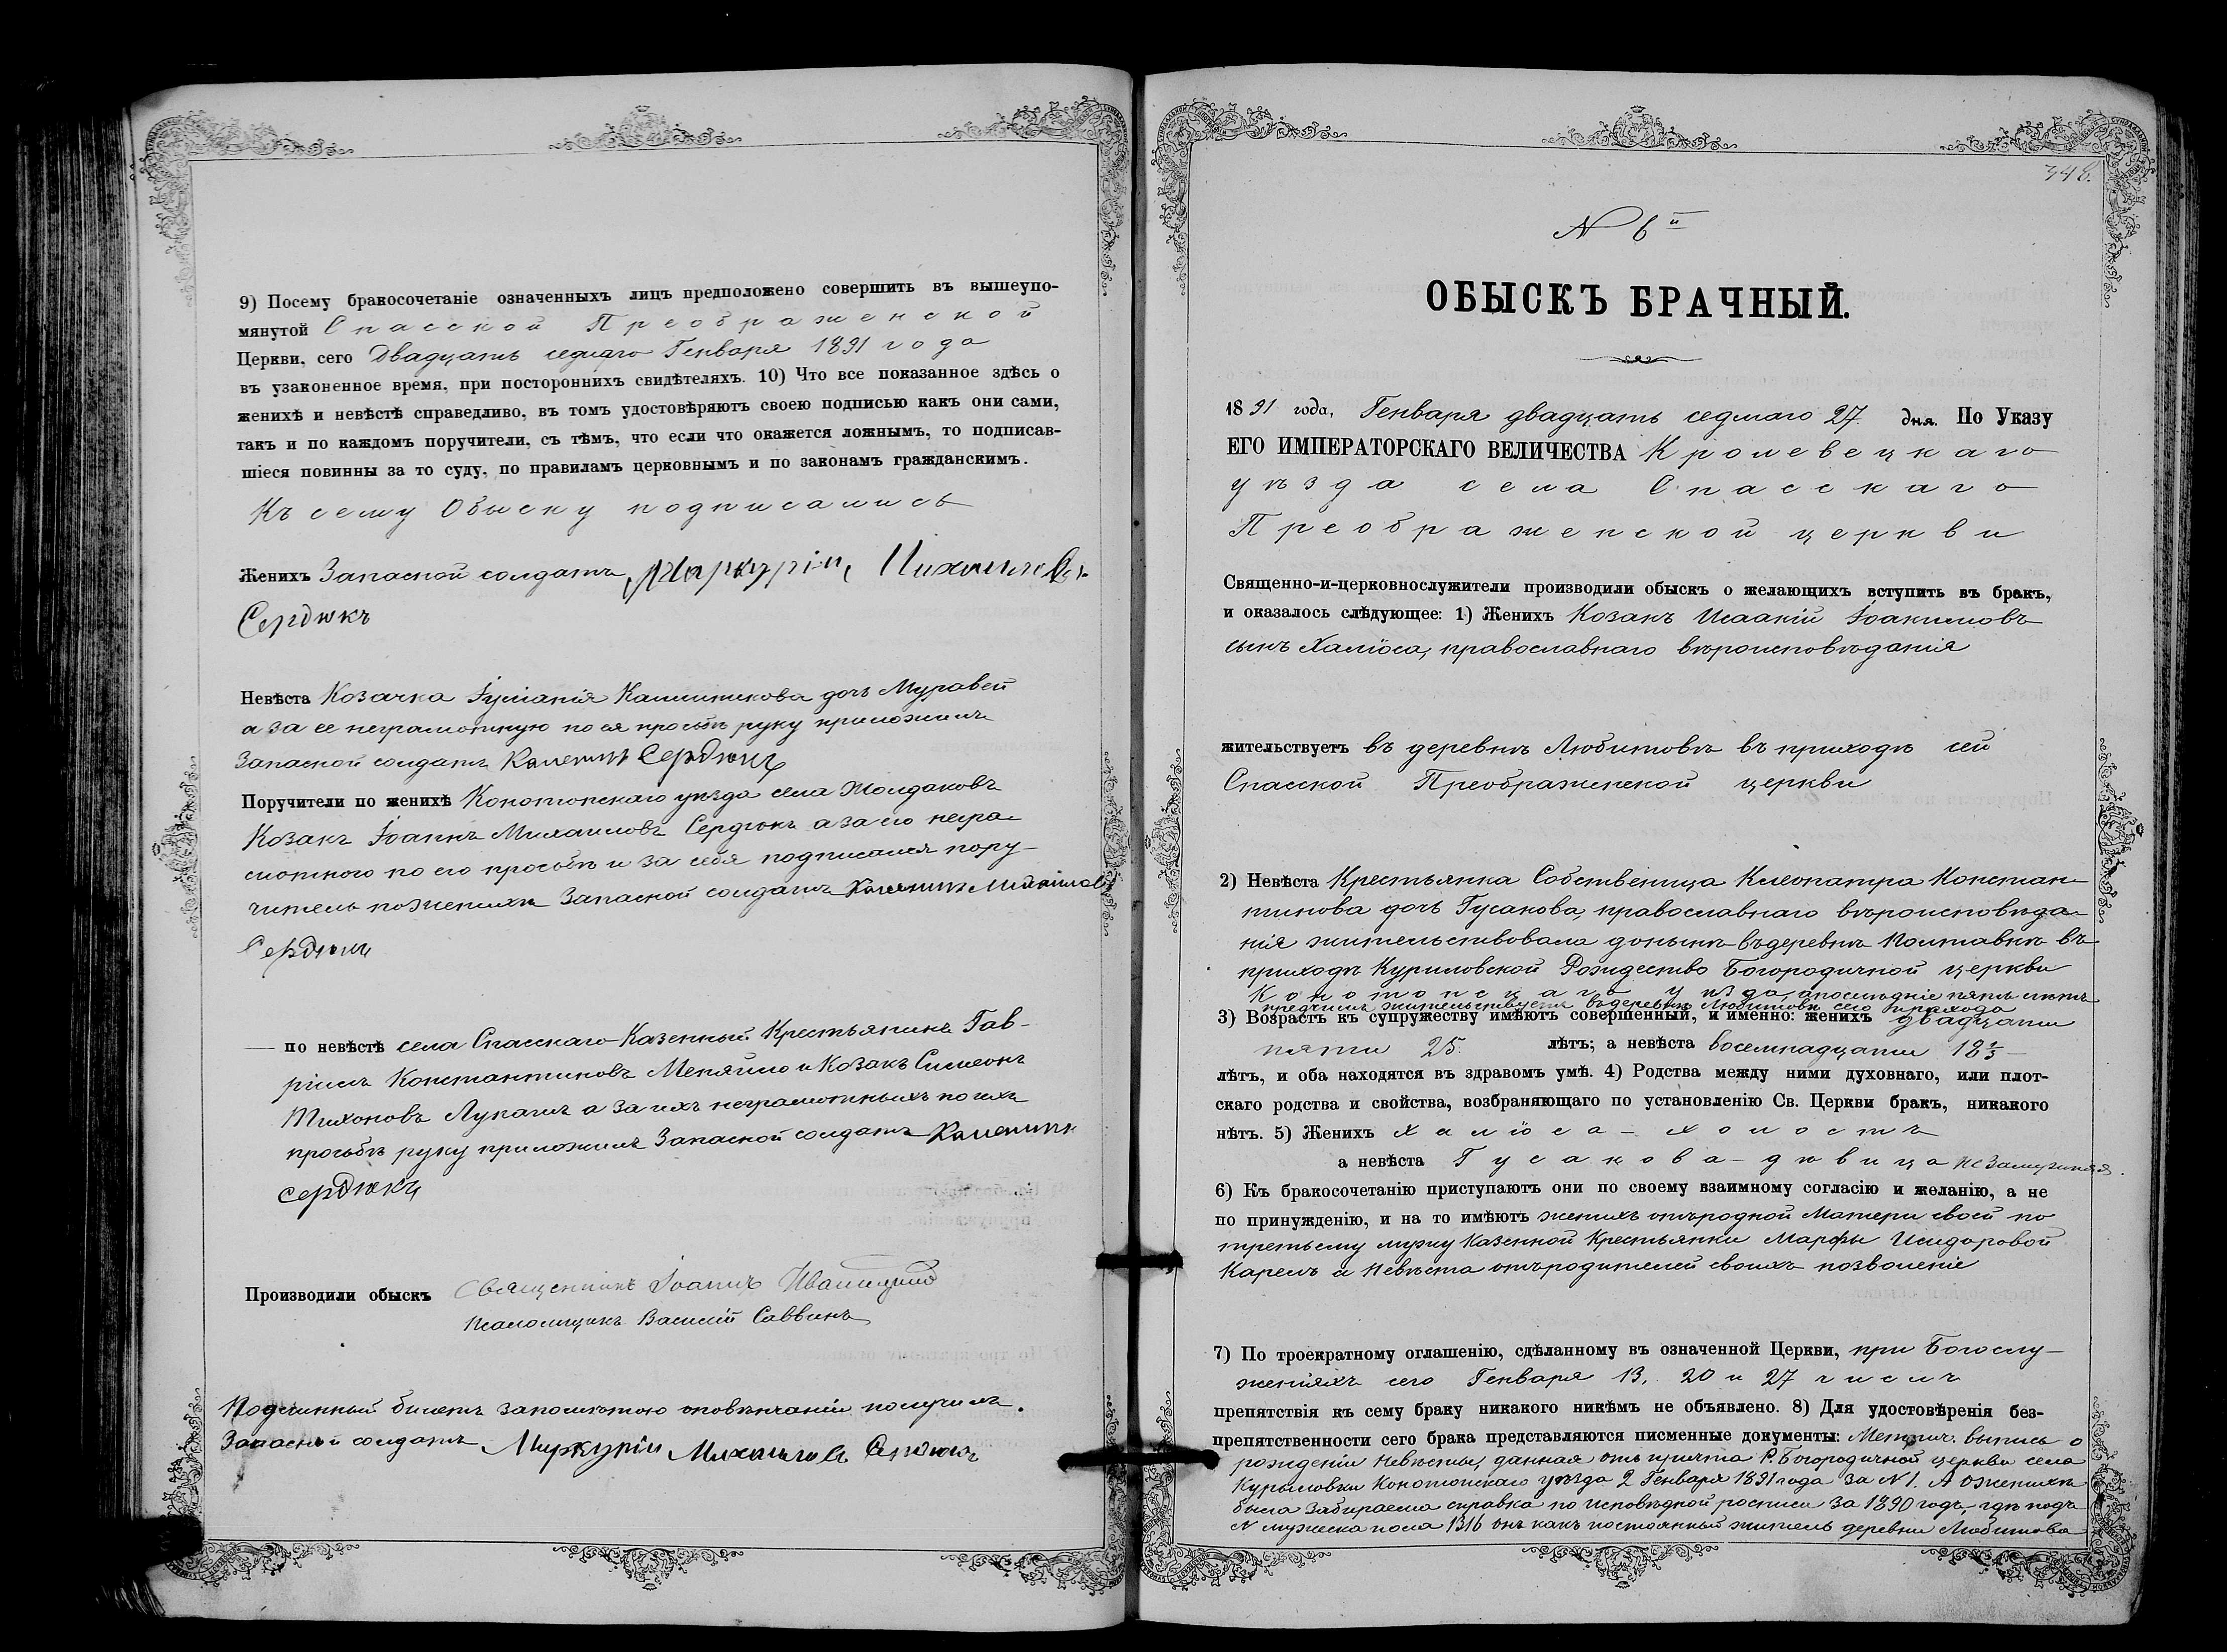 9) Посему бракосочетаніе означенныхъ лицъ предположено совершить въ вышеупо-
мянутой Спасской Преображенской
Церкви, сего Двадцать седмаго Генваря 1891 года
въ узаконенное время, при постороннихъ свидѣтеляхъ. 10) Что все показанное здѣсь о
женихѣ и невѣстѣ справедливо, въ томъ удостовѣряютъ своею подписью какъ они сами,
такъ и по каждомъ поручители, съ тѣмъ, что если что окажется ложнымъ, то подписав-
шіеся повинны за то суду, по правиламъ церковнымъ и по законамъ гражданскимъ.
Къ сему Обыску подписались
Женихъ Запасной солдатъ Меркурій Михаиловъ
Сердюкъ
Невѣста Козачка Іуліанія Каллиникова дочь Муравей
а за ее неграмотную по ея просьбѣ руку приложилъ
Запасной солдатъ Сердюкъ
Поручители по женихѣ Конотопскаго уѣзда села Жолдаковъ
Козакъ Іоаннъ Михаиловъ Сердюкъ а за его негра-
мотного по его просьбѣ и за себя подписался пору-
читель по женихѣ Запасной солдатъ Михаиловъ
Сердюкъ
— по невѣстѣ села Спасскаго Казенный Крестьянинъ Гав-
ріилъ Константиновъ Меняйло и Козакъ Симеонъ
Тихоновъ Лукашъ а за ихъ неграмотныхъ по ихъ
просьбѣ руку приложилъ Запасной солдатъ
Сердюкъ
Производили обыскъ Священникъ Іоаннъ
Псаломщикъ Василій Саввинъ
Подлинный билетъ запомѣтою оповѣнчаніи получилъ.
Запасный солдатъ Меркурій Михаиловъ Сердюкъ
348.
N 6й
ОБЫСКЪ БРАЧНЫЙ.
1891 года, Генваря двадцать седмаго 27 дня. По Указу
ЕГО ИМПЕРАТОРСКАГО ВЕЛИЧЕСТВА Кролевецкаго
уѣзда села Спасскаго
Преображенской церкви
Священно-и-церковнослужители производили обыскъ о желающихъ вступить въ бракъ,
и оказалось слѣдующее: 1) Женихъ Козакъ Исаакій Іоакимовъ
сынъ Халіоса, православнаго вѣроисповѣданія
жительствуетъ въ деревнѣ Любитовѣ въ приходѣ сей
Спасской Преображенской церкви
2) Невѣста Крестьянка Собственица Клеопатра Констан-
тинова дочь Гусакова, православнаго вѣроисповѣда-
нія жительствовала донынѣ въ деревнѣ Полтавкѣ въ
приходѣ Куриловской Рождество Богородичной церкви
Конотопскаго уѣзда, а послѣдніе пять лѣтъ
жительствуетъ въ деревнѣ Любитовѣ сего прихода
3) Возрастъ къ супружеству имѣютъ совершенный, и именно: женихъ двадцати
пяти 25. лѣтъ; а невѣста восемнадцати 18 1/3
лѣтъ, и оба находятся въ здравомъ умѣ. 4) Родства между ними духовнаго, или плот-
скаго родства и свойства, возбраняющаго по установленію Св. Церкви бракъ, никакого
нѣтъ. 5) Женихъ Халіоса — холостъ
а невѣста Гусакова — дѣвица незамужняя.
6) Къ бракосочетанію приступаютъ они по своему взаимному согласію и желанію, а не
по принужденію, и на то имѣютъ женихъ отъ родной Матери своей по
третьему мужу Казенной Крестьянки Марфы Исидоровой
Карель а Невѣста отъ родителей своихъ позволеніе
7) По троекратному оглашенію, сдѣланному въ означенной Церкви, при Богослу-
женіяхъ сего Генваря 13, 20 и 27 числъ
препятствія къ сему браку никакого никѣмъ не объявлено. 8) Для удостовѣренія без-
препятственности сего брака представляются писменные документы: Метрич. выпись о
рожденіи Невѣсты, данная отъ причта Р. Богородичной церкви села
Куриловки Конотопскаго уѣзда 2 Генваря 1891 года за N 1. А о женихѣ
была забираема справка по исповѣдной росписи за 1890 годъ, гдѣ подъ
N мужеска пола 1316 онъ какъ постоянный житель деревни Любитова